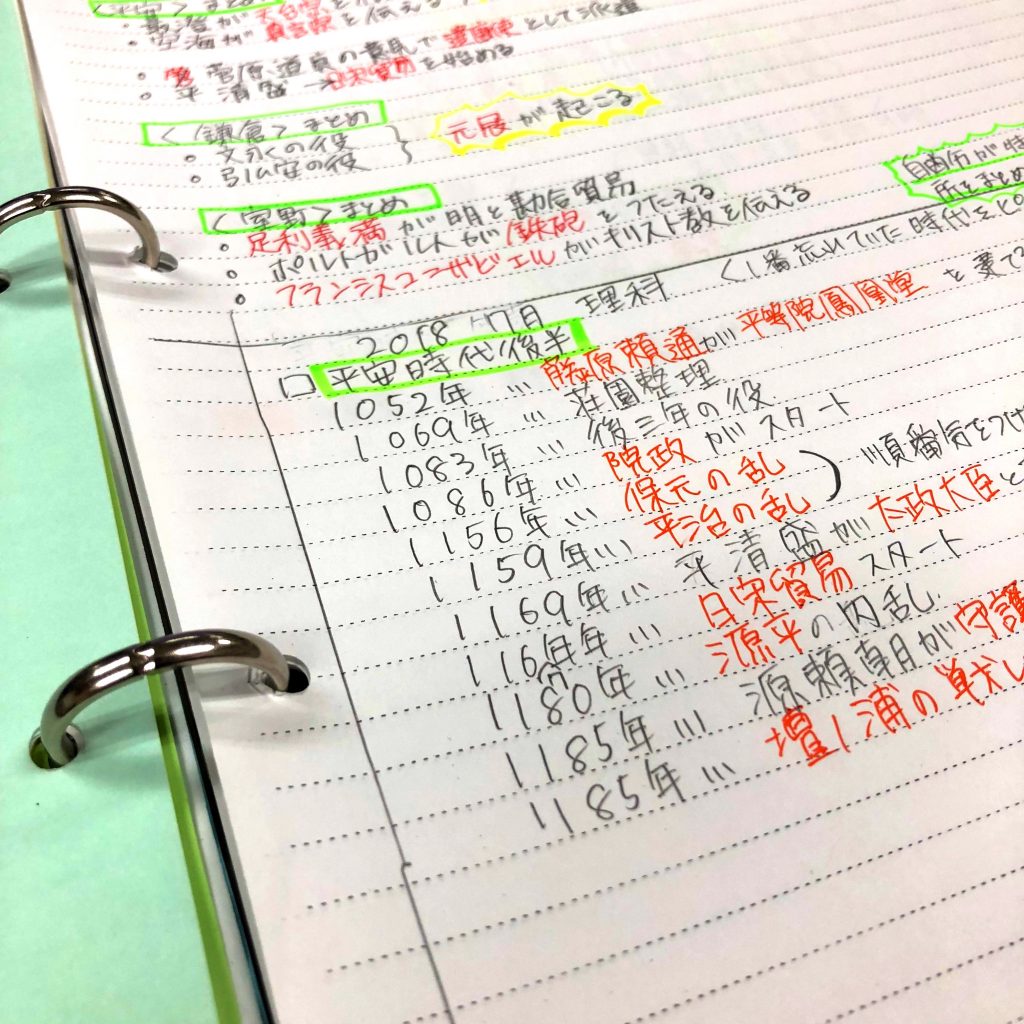 <平安>まとめ
・最澄が天台宗を
・空海が真言宗を伝える
・菅原道真の意見で遣唐使として派遣
・平清盛→日宋貿易を始める
<鎌倉>まとめ
・文永の役
・弘安の役
元展が起こる
<室町>まとめ
・足利義満が明と勘合貿易
・ポルトガル人が鉄砲をつたえる
・フランシスコ=ザビエルがキリスト教を伝える
自由
所をまとめ
2018 7月 理科 <1番忘れていた時代を
□平安時代/後半
1052年 … 藤原頼通が平等院鳳凰堂を建て
1069年 … 荘園整理
1083年 … 後三年の役
1086年 … 院政がスタート
1156年 … 保元の乱
1159年 … 平治の乱
順番気をつけ
1169年 … 平清盛が太政大臣と
116年 … 日宋貿易スタート
1180年 … 源平の内乱
1185年 … 源頼朝が守護
1185年 … 壇ノ浦の戦い